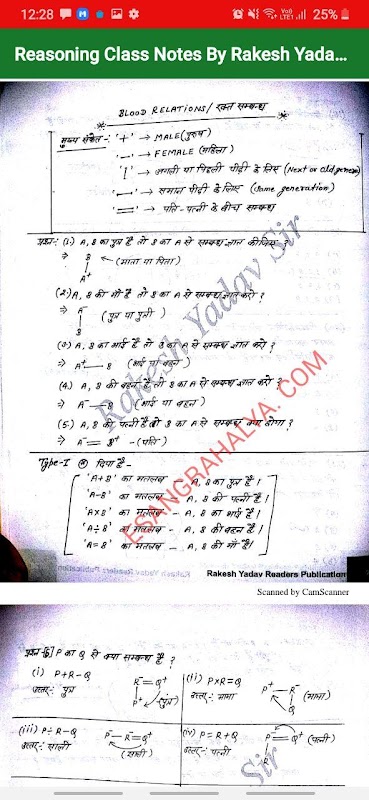 12:28
25%
Reasoning Class Notes By Rakesh Yada...
BLOOD RELATIONS / रक्त सम्बन्ध
मुख्य संकेत :- '+' → MALE (पुरुष)
'_' → FEMALE (महिला)
'|' → अगली या पिछली पीढ़ी के लिए (Next or old genera
'—' → समान पीढ़ी के लिए (Same generation)
'=' → पति-पत्नी के बीच सम्बन्ध
प्रश्न :- (1) A, B का पुत्र है तो B का A से सम्बन्ध ज्ञात कीजिए ?
⇒ B ← (माता या पिता)
|
A+
(2) A, B की माँ है तो B का A से सम्बन्ध ज्ञात करो ?
⇒ A- (पुत्र या पुत्री)
|
B
(3) A, B का भाई है तो B का A से सम्बन्ध ज्ञात करो ?
⇒ A+ — B (भाई या बहन)
(4) A, B की बहन है तो B का A से सम्बन्ध ज्ञात करो ?
⇒ A- — B (भाई या बहन)
(5) A, B की पत्नी है तो B का A से सम्बन्ध क्या होगा ?
⇒ A- = B+ - (पति)
Type-I दिया है -
'A+B' का मतलब - A, B का पुत्र है।
'A-B' का मतलब - A, B की पत्नी है।
'A×B' का मतलब - A, B का भाई है।
'A÷B' का मतलब - A, B की बहन है।
'A=B' का मतलब - A, B की माँ है।
Rakesh Yadav Sir
ESANGRAHALYA.COM
Rakesh Yadav Readers Publication
Scanned by CamScanner
प्रश्न [6] P का Q से क्या सम्बन्ध है ?
(i) P+R-Q
उत्तर:- पुत्र
R- = Q+
P+ (पुत्र)
(ii) P×R=Q
उत्तर:- मामा
P+ — R-
Q (मामा)
(iii) P÷R-Q
उत्तर:- साली
P- — R- = Q+
(साली)
(iv) P=R+Q
उत्तर:- पत्नी
P- = Q+ (पत्नी)
R
Sir